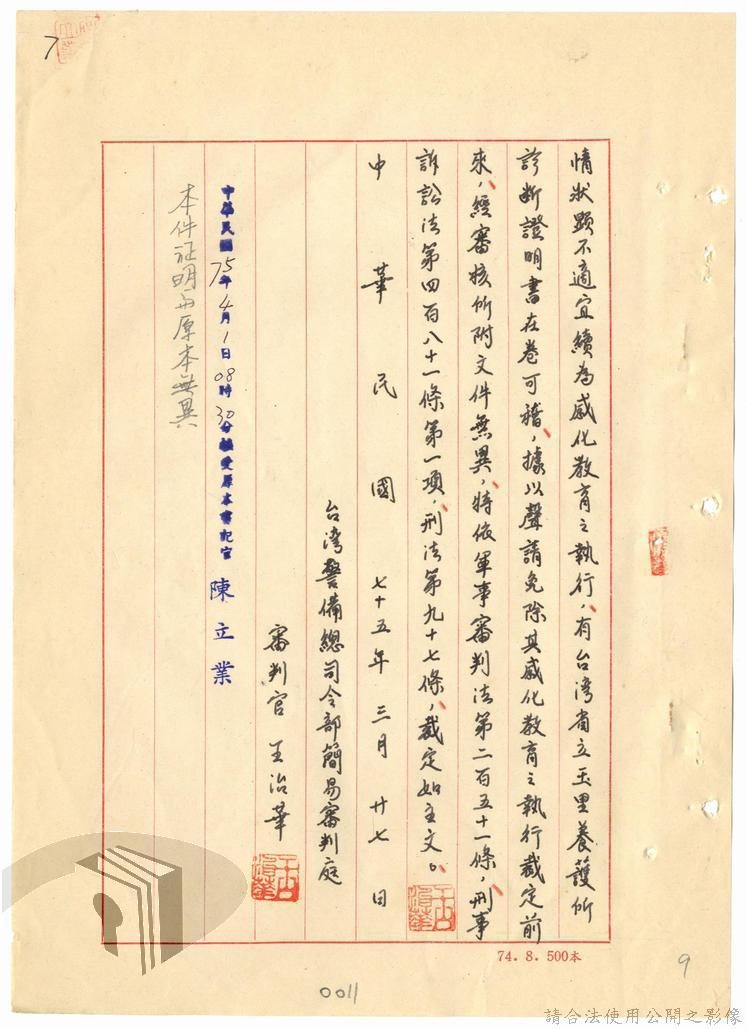 7
情狀顯不適宜續為感化教育之執行，有台灣省立玉里養護所
診断證明書在卷可稽，據以聲請免除其感化教育之執行裁定前
來，經審核所附文件無異，特依軍事審判法第二百五十一條，刑事
訴訟法第四百八十一條第一項，刑法第九十七條，裁定如主文。
中華民國七十五年三月廿七日
台灣警備總司令部簡易審判庭
審判官 王治華
中華民國75年4月1日08時30分領受原本書記官 陳立業
本件証明与原本無異
74. 8. 500本
9
0011
請合法使用公開之影像